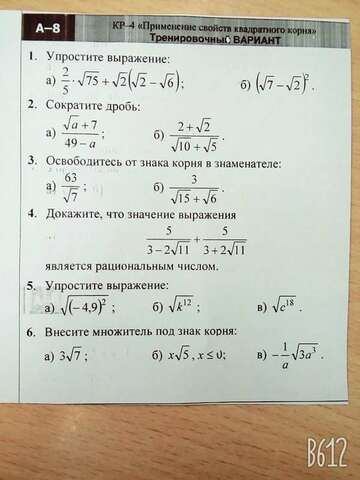 А–8
КР–4 «Применение свойств квадратного корня»
Тренировочный ВАРИАНТ
1. Упростите выражение:
а) 2/5 · √75 + √2(√2 − √6); б) (√7 − √2)².
2. Сократите дробь:
а) (√a + 7)/(49 − a); б) (2 + √2)/(√10 + √5).
3. Освободитесь от знака корня в знаменателе:
а) 63/√7; б) 3/(√15 + √6).
4. Докажите, что значение выражения
5/(3 − 2√11) + 5/(3 + 2√11)
является рациональным числом.
5. Упростите выражение:
а) √(−4,9)²; б) √k¹²; в) √c¹⁸.
6. Внесите множитель под знак корня:
а) 3√7; б) x√5, x ≤ 0; в) −1/a √3a³.
B612